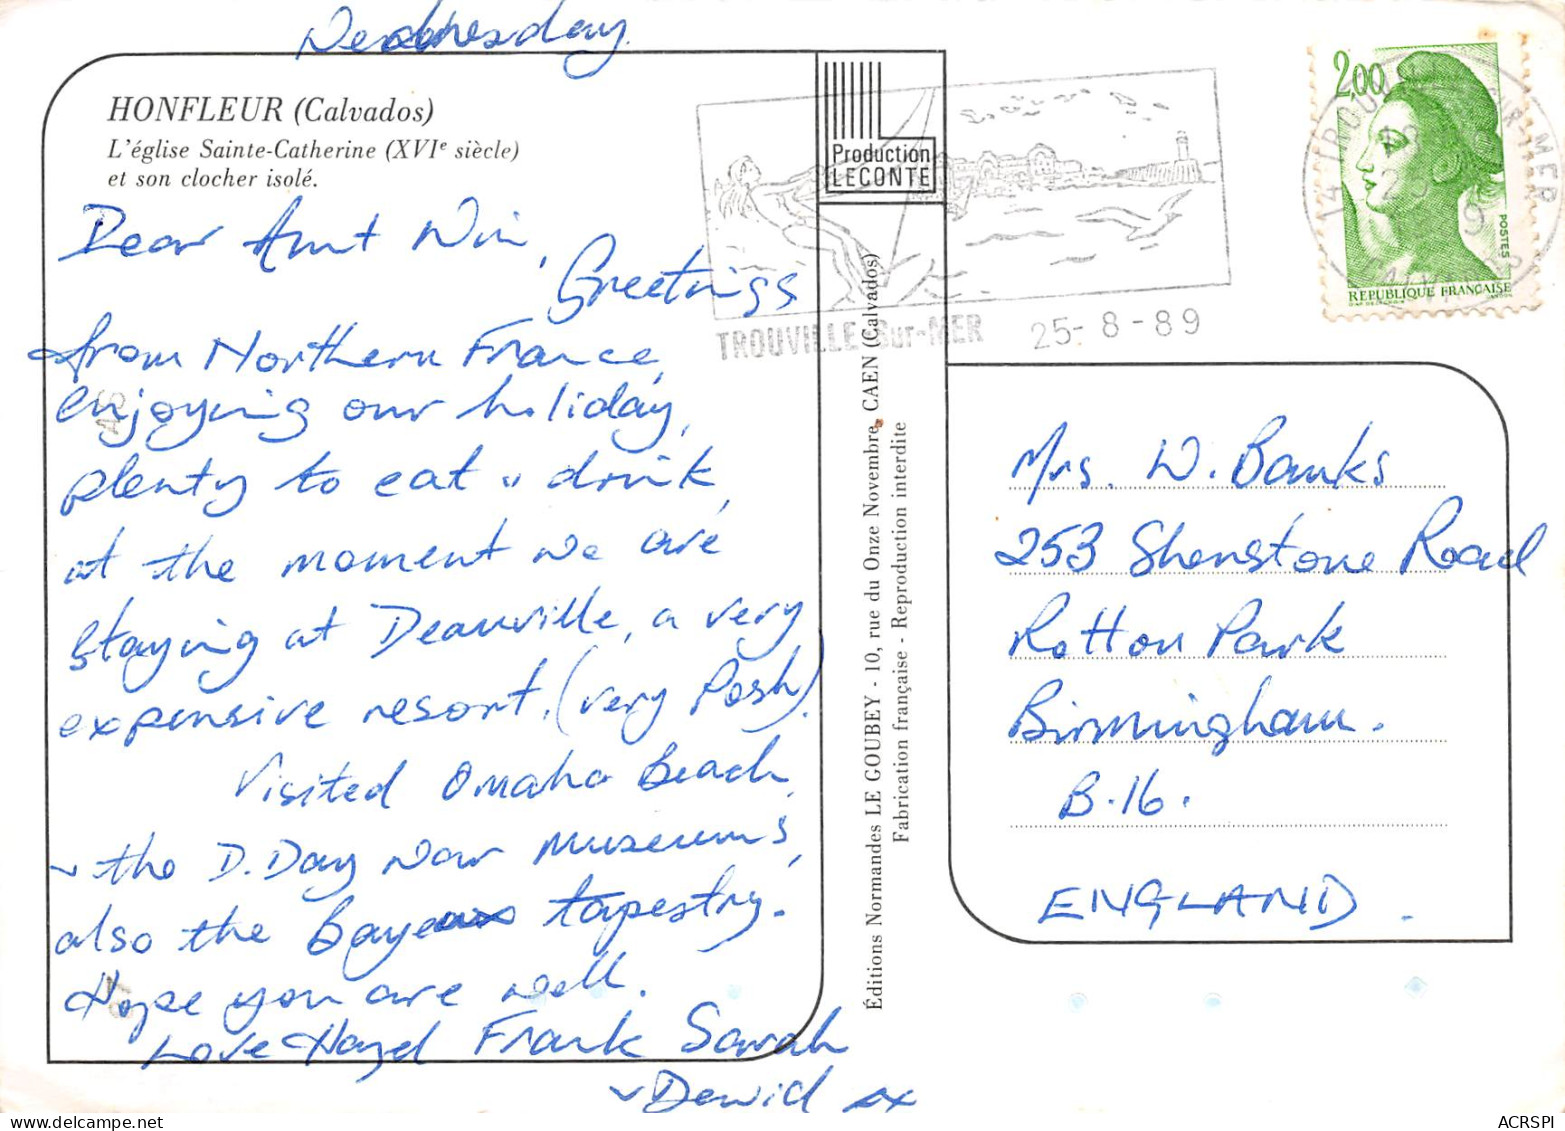 Wednesday
HONFLEUR (Calvados)
L'église Sainte-Catherine (XVIᵉ siècle)
et son clocher isolé.
Dear Aunt Win,
Greetings
from Northern France,
enjoying our holiday,
plenty to eat " drink,
at the moment we are
staying at Deauville, a very
expensive resort. (very Posh).
Visited Omaha Beach,
~ the D.Day War Museum's,
also the Bayeaux tapestry.
Hope you are well.
Love Hazel Frank Sarah
~ David xx
Production
LECONTE
TROUVILLE-Sur-MER
25-8-89
2,00
POSTES
REPUBLIQUE FRANÇAISE
14 TROUVILLE-SUR-MER
CALVADOS
Éditions Normandes LE GOUBEY - 10, rue du Onze Novembre, CAEN (Calvados)
Fabrication française - Reproduction interdite
Mrs. W. Banks
253 Shenstone Road
Rotton Park
Birmingham.
B.16.
ENGLAND.
ACRSPI